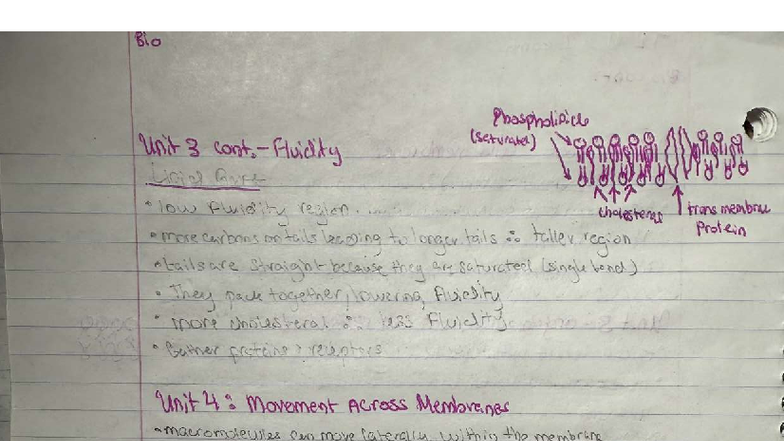 Bio
Phospholipids
(saturated)
Unit 3 cont. - Fluidity
Lipid
cholesterol
trans membrane
Protein
• low fluidity region
• more carbons on tails leading to longer tails ∴ taller region
• tails are straight because they are saturated (single bond)
• They pack together, lowering fluidity
• more cholesterol ∴ less Fluidity
• Gather proteins & receptors
Unit 4: Movement Across Membranes
• macromolecules can move laterally within the membrane